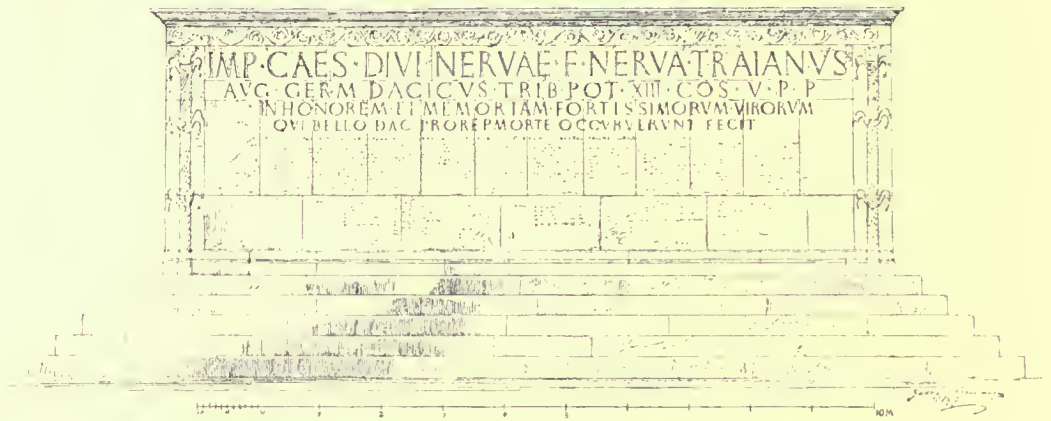 IMP·CAES·DIVI·NERVAE·F·NERVA·TRAIANVS
AVG·GERM·DACICVS·TRIB·POT·XIIII·COS·V·P·P
IN HONOREM ET MEMORIAM·FORTISSIMORVM·VIRORVM
QVI BELLO DAC PRO REP MORTE OCCVBVERVNT FECIT
10M